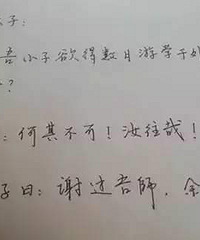 子：
吾小子欲得数月游学于
？
：何其不可！汝往哉！
子曰：谢过吾師，余